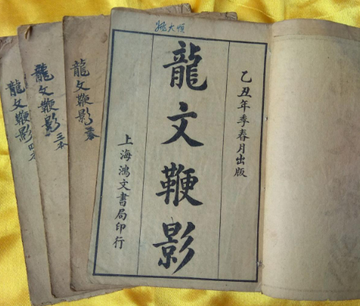 乙丑年季春月出版
龍文鞭影
上海鴻文書局印行
龍文鞭影
龍文鞭影三本
龍文鞭影四本